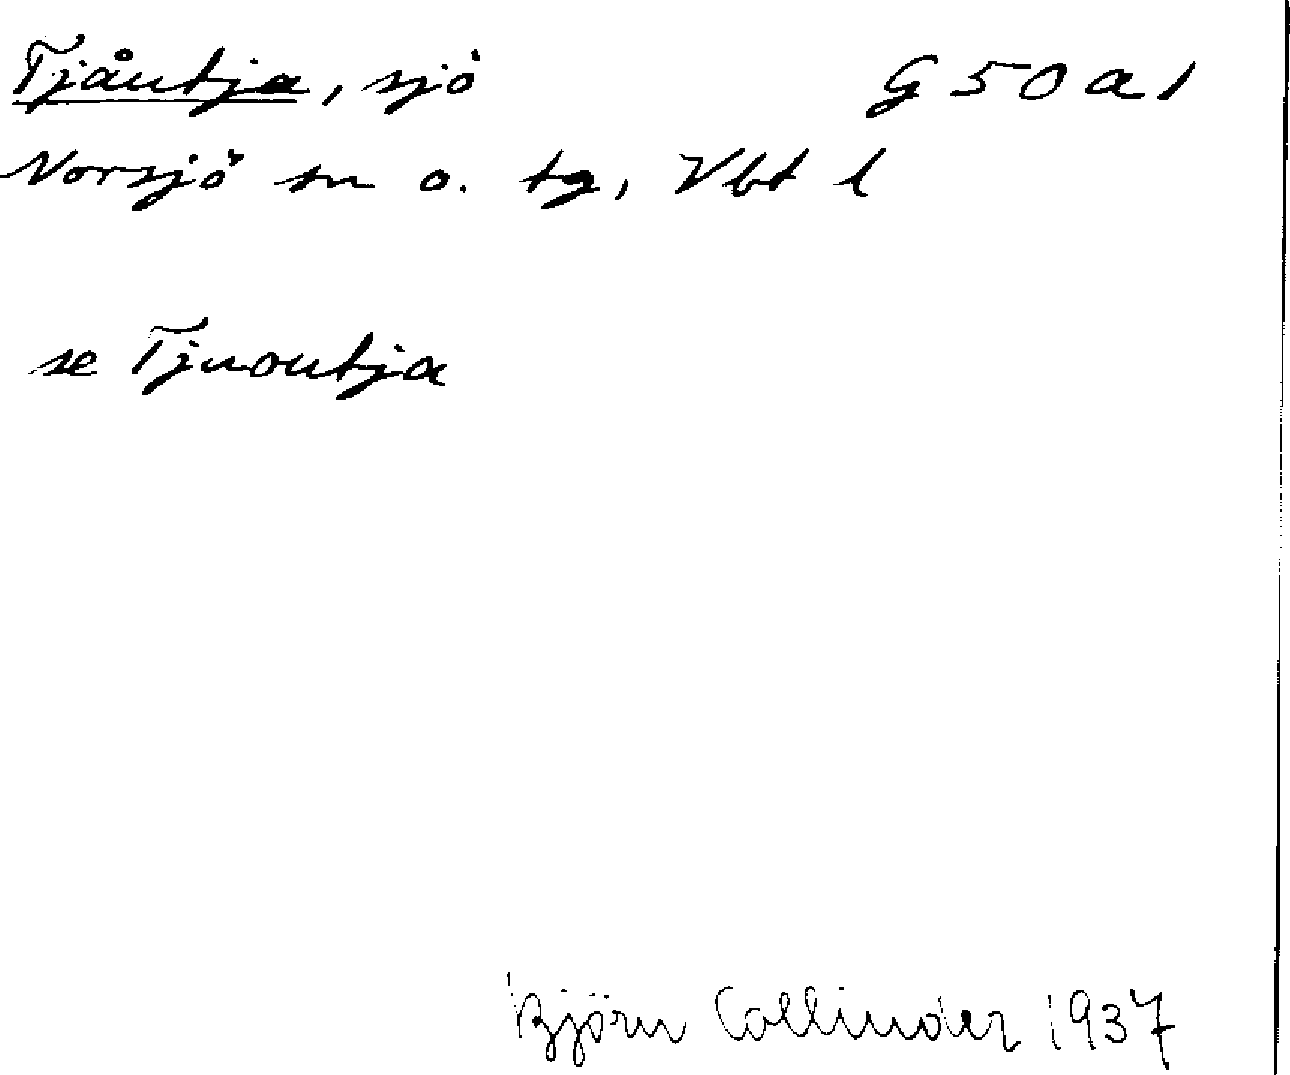 Tjåutja, sjö G 50 a 1
Norsjö sn o. tg, Vbt l
se Tjuoutja
Björn Collinder 1937